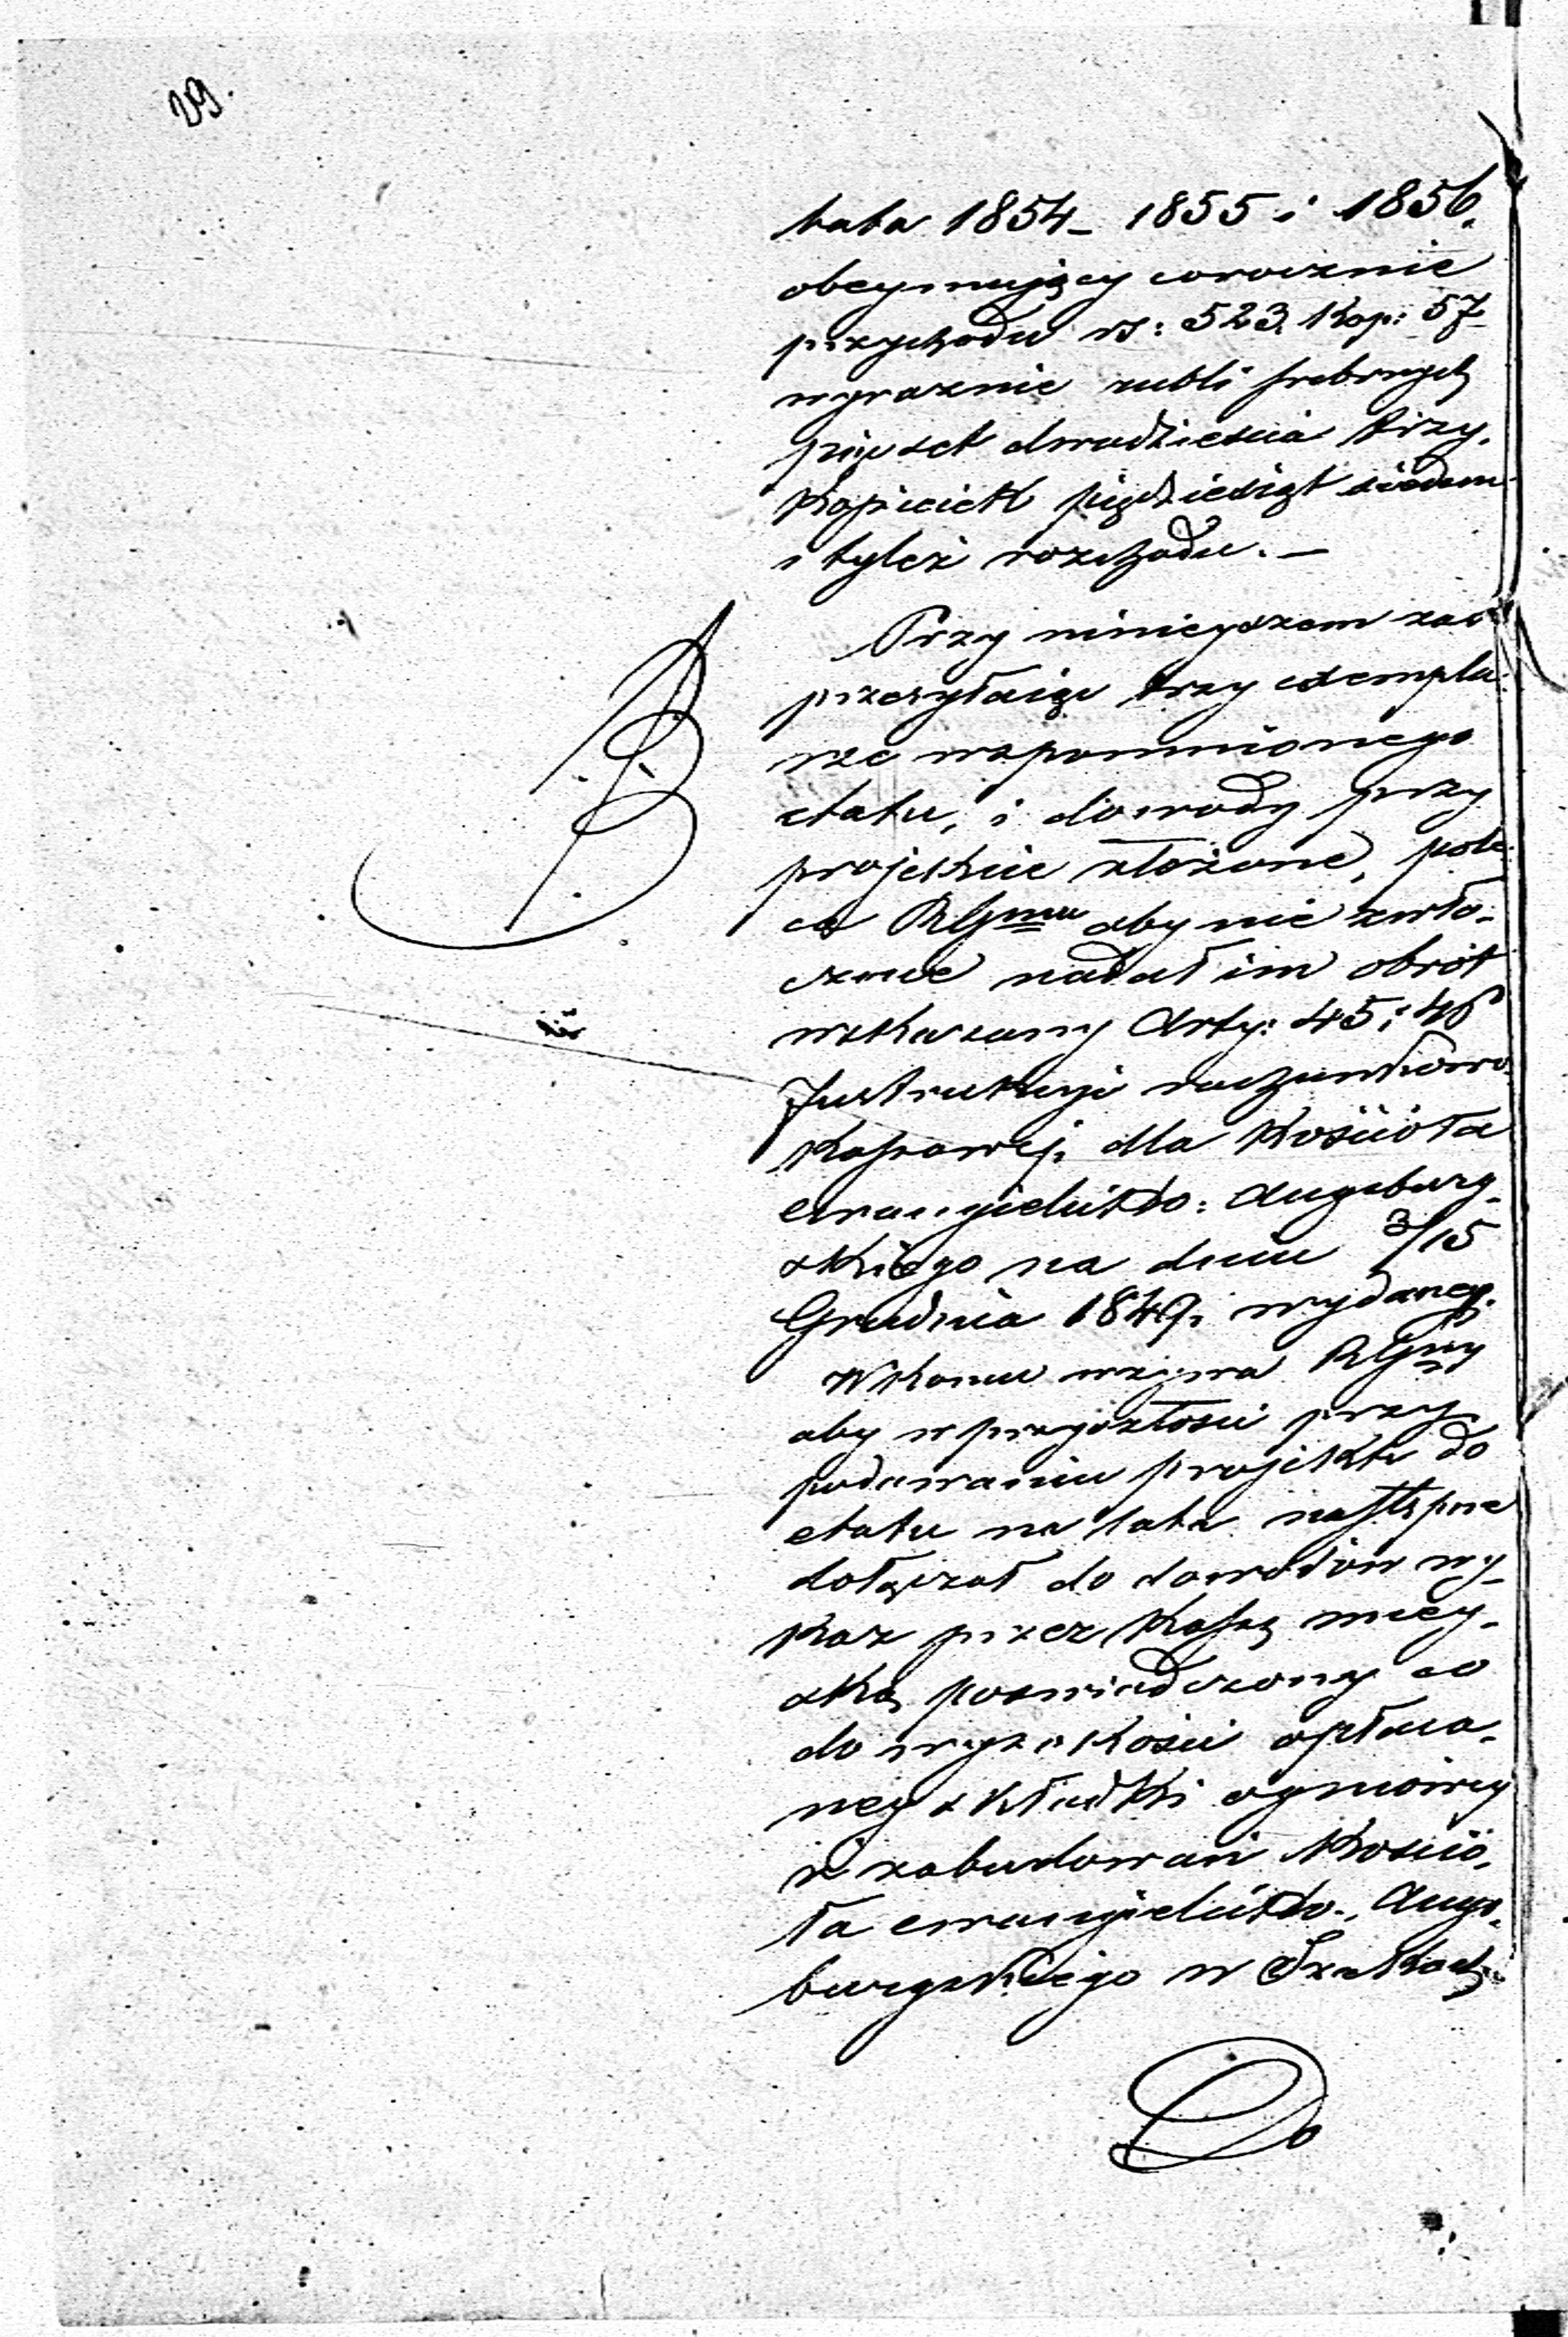 29.
lata 1854_ 1855 i 1856.
obeymujący corocznie
przychodu rs: 523. Kop: 57
wyraznie rubli srebrnych
pięcset dwadzieścia trzy.
Kopieiek pięćdziesiąt siedem
i tyleż rozchodu. —
Przy ninieyszem
przesyłaiąc trzy exempla:
rze wspomnionego
etatu, i dowody przy
projekcie złożone, pole:
ca RGmu aby nie zwło-
cznie nadał im obrót
wskazany Arty: 45 i 46
Instrukcyi rachunkowo
Kassowej, dla Kościoła
Ewangielicko: Augsburg-
skiego na dniu 3/15
Grudnia 1849, wydaney.
W Koncu wzywa RGny
aby w przyszłości przy
podawaniu projektu do
etatu na lata następne
dołączał do dowodów wy-
kaz przez Kassę miey-
ską poswiadczony co
do wysokości opłaca-
ney składki ogniowey
z zabudowań Kościo-
ła ewangielicko-Augs-
burgskiego w
Do